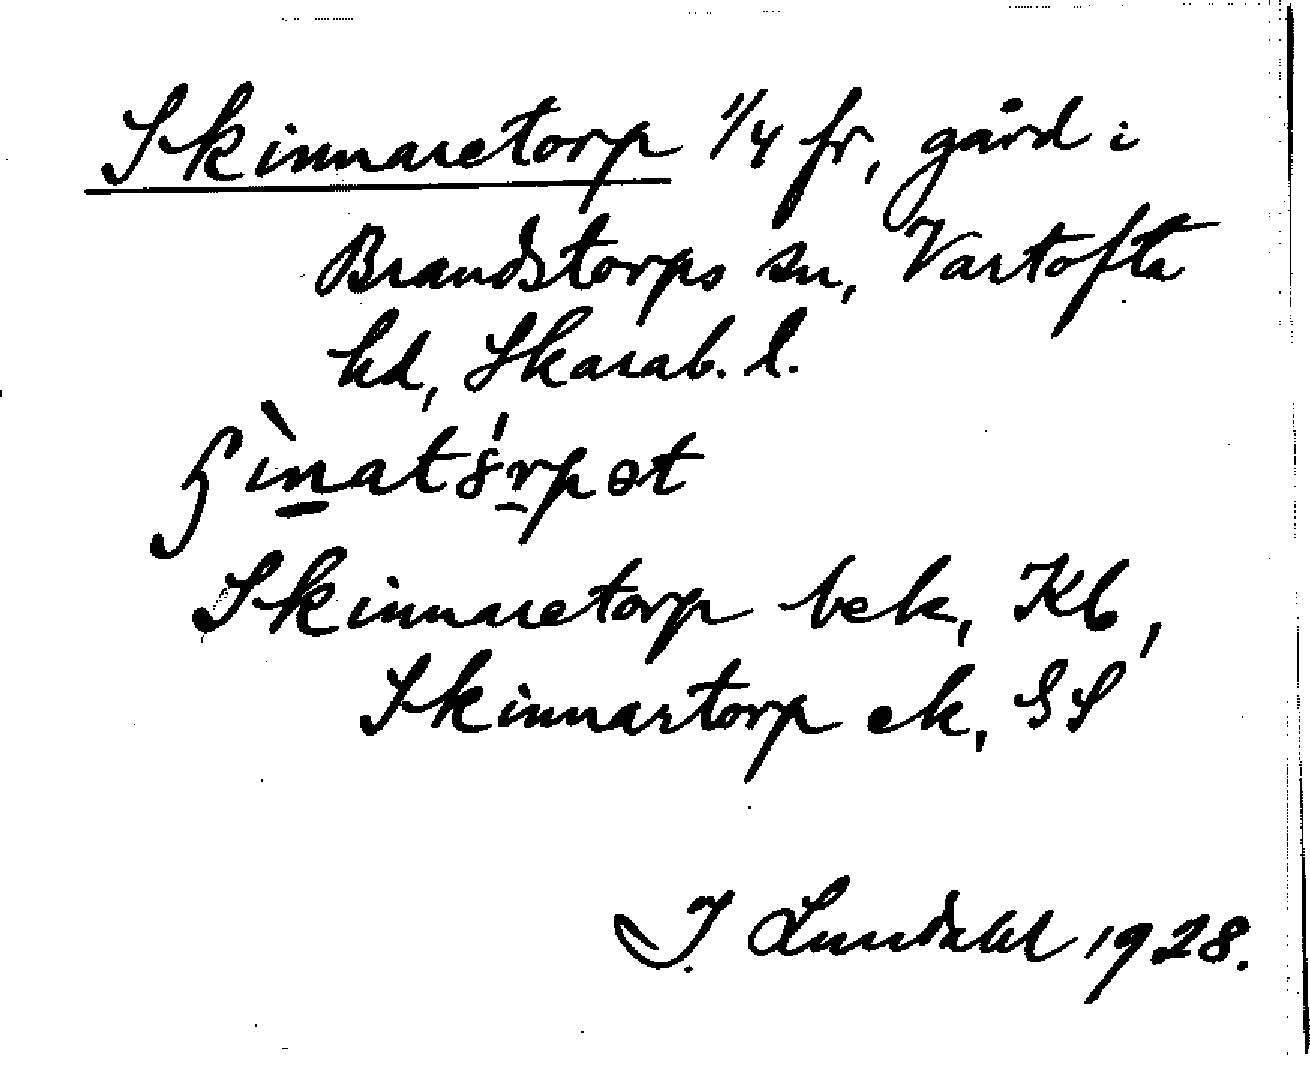 Skinnaretorp 1/4 fr, gård i
Brandstorps sn, Vartofta
hd, Skarab. l.
Skinnaretorp bek, Kb,
Skinnartorp ek, GS
I Lundahl 1928.